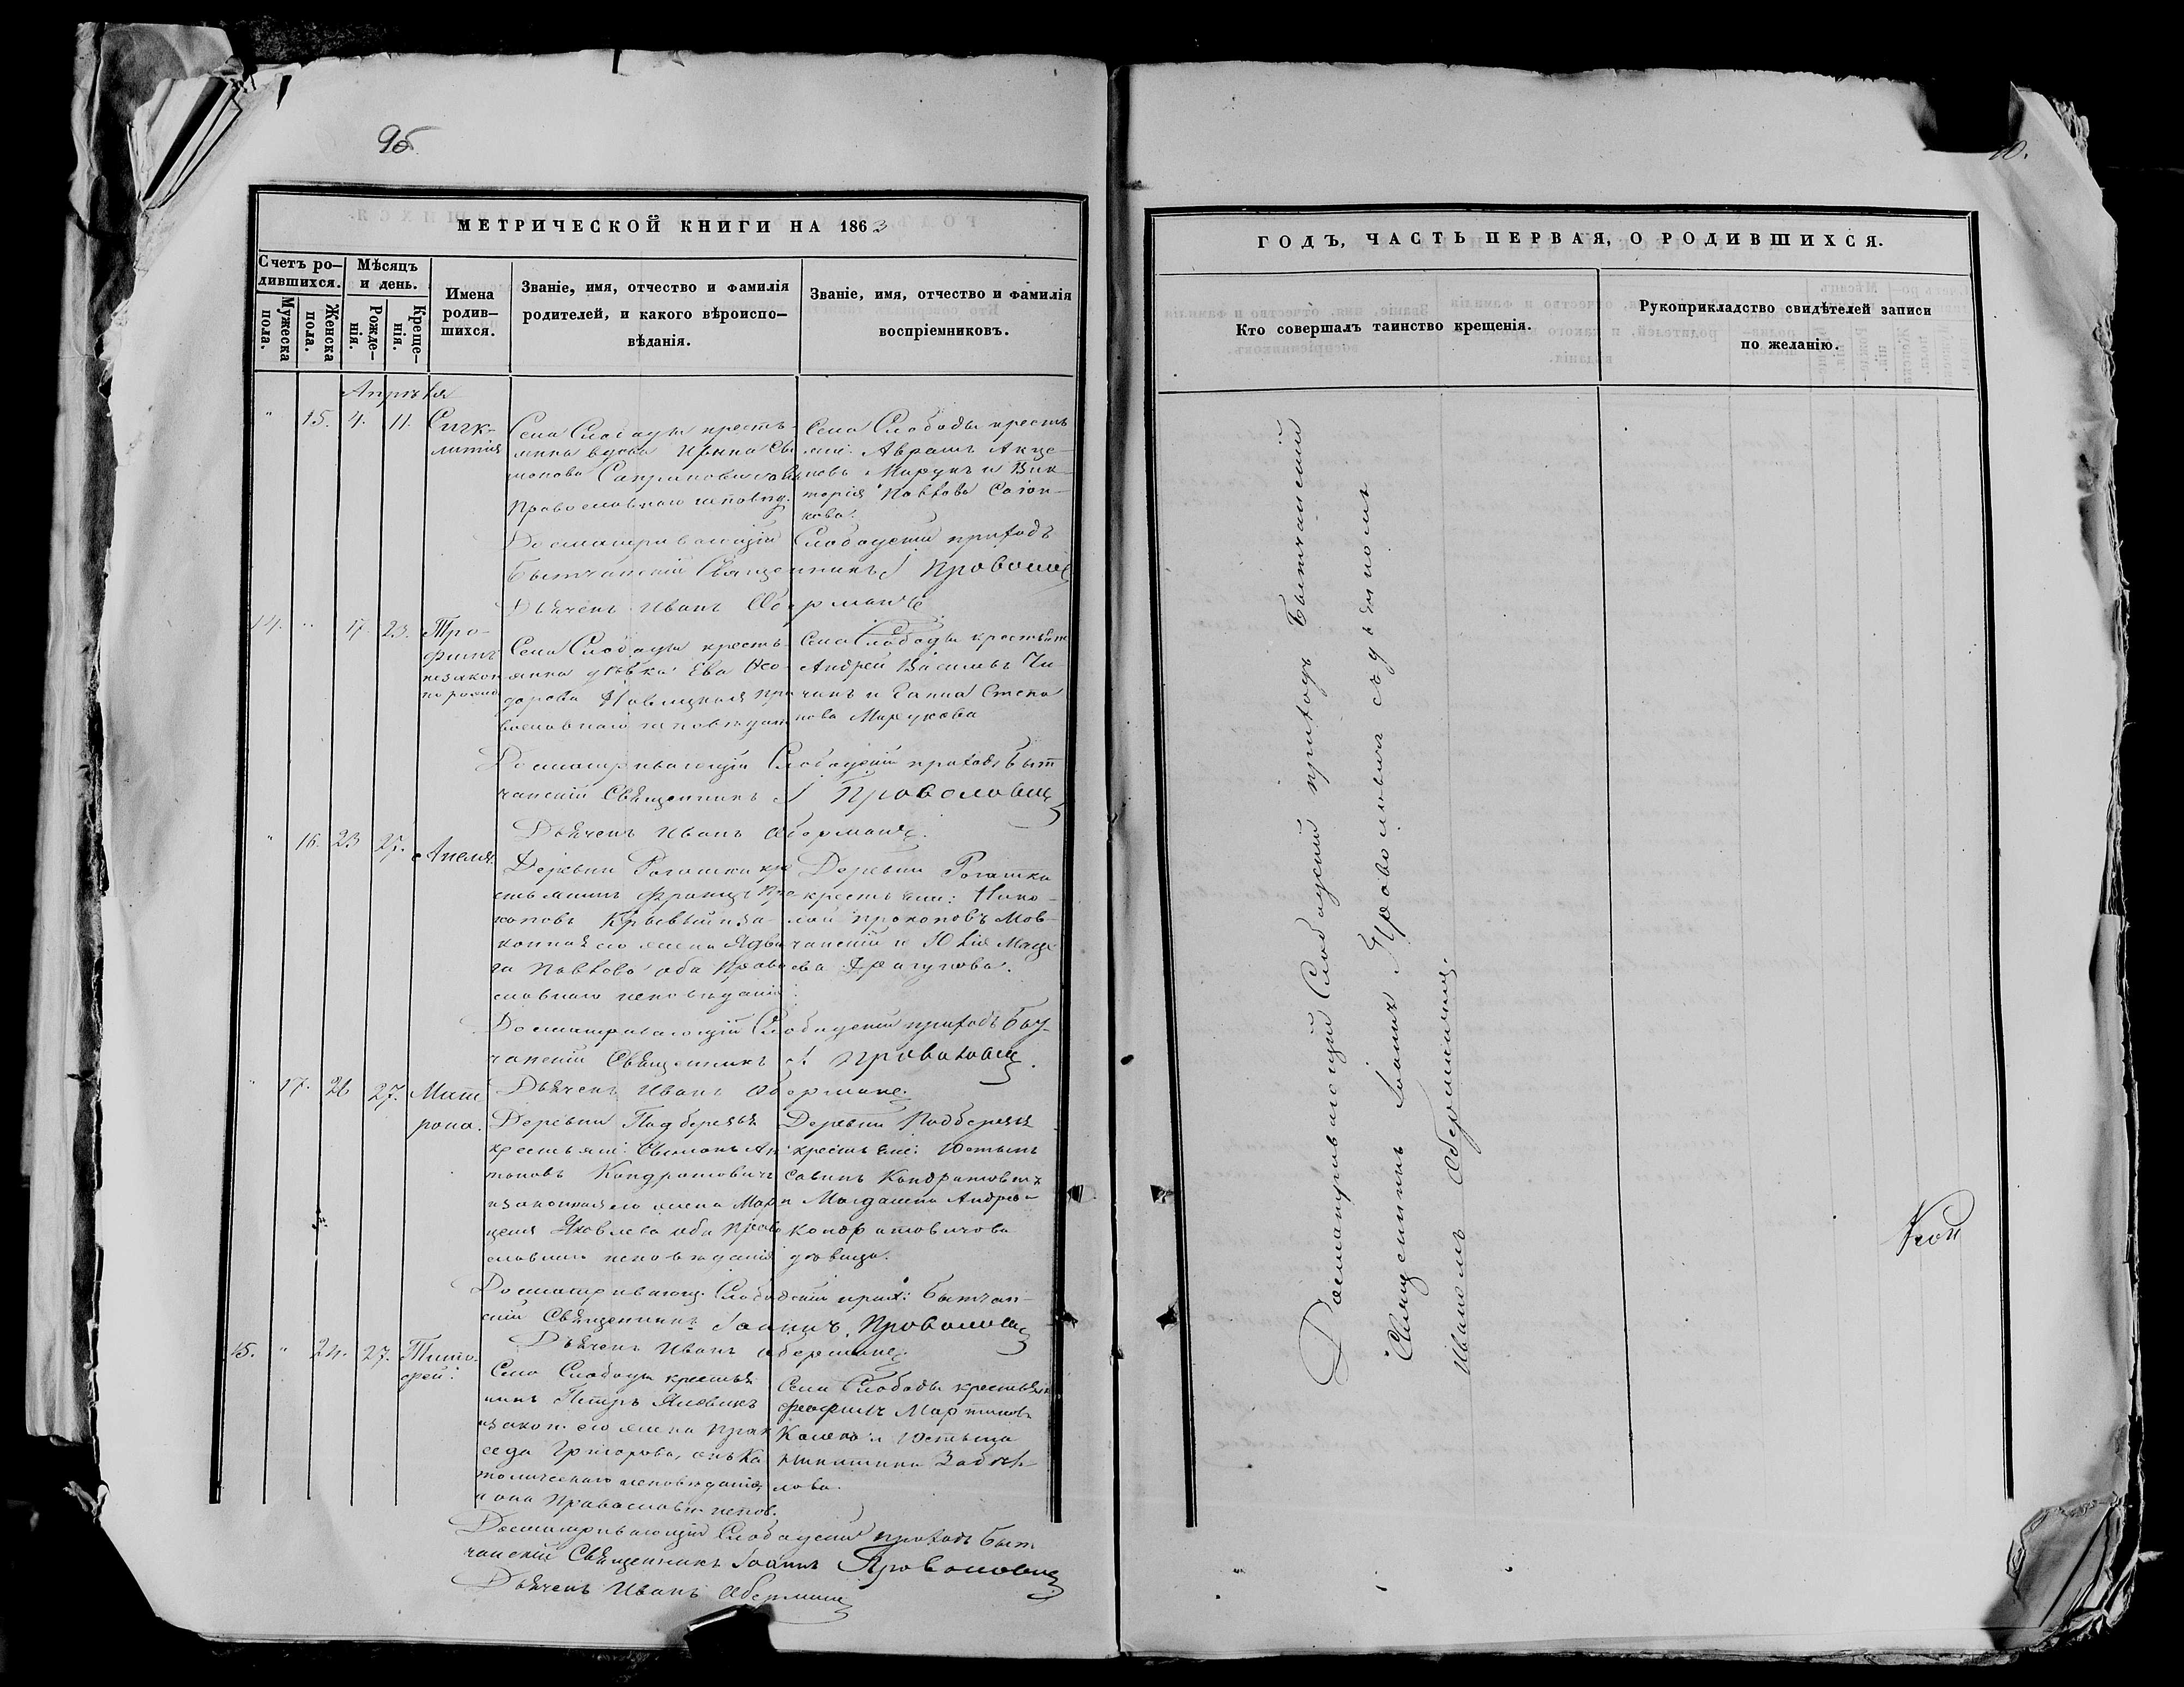 95
МЕТРИЧЕСКОЙ КНИГИ НА 1863
Счетъ ро-
дившихся.
Мужеска
пола.
Женска
пола.
Мѣсяцъ
и день.
Рожде-
нія.
Креще-
нія.
Имена
родив-
шихся.
Званіе, имя, отчество и фамилія
родителей, и какого вѣроиспо-
вѣданія.
Званіе, имя, отчество и фамилія
воспріемниковъ.
Апрѣля
" 15. 4. 11.
Сигк-
литія
Села Слободы кресть-
янка вдова
Православнаго
Села Слободы кресть
Аврамъ
Марукъ и Вик-
торія Павлова
Досматривающій Слободскій приходъ
Бытчанскій Священникъ І Проволовичъ
Дьячекъ Иванъ Оберманъ
14. " 17. 23.
Тро-
фимъ
незакон
но рожд
Села Слободы кресть-
янка дѣвка Ева Ѳео-
дорова Новицкая пра
вославнаго исповѣдан
Села Слободы крестьян
Андрей Васильевъ Чи-
чинъ и Ганна Степа
нова Марукова
Досматривающій Слободскій приходъ Быт
чанскій Священникъ І Проволовичъ
Дьячекъ Иванъ Оберманъ.
" 16. 23 27.
Анелія
Деревни Рогатки кре
стьянинъ Францъ Про
коповъ и за-
конная его жена Ядви
га Павлова оба Право
славнаго исповѣданія
Деревни Рогатки
крестьяни: Нико-
лай Прокоповъ Мов-
чанскій и Юлія
Драгунова.
Досматривающій Слободскій приходъ Быт-
чанскій Священникъ І Проволовичъ.
Дьячекъ Иванъ Оберманъ.
" 17. 26 27.
Мат
рона.
Деревни Подберезья
крестьяни: Сѵмеонъ Ан
тоновъ Кондратовичъ
и законная его жена Мар
целя Яковлева оба Право
славнаго исповѣданія
Деревни Подберезья
крестьяни: Юстинъ
Савинъ Кондратовичъ
и Магдалена Андреева
Кондратовичова
дѣвица.
Досматривающ. Слободскій прих: Бытчан-
скій Священникъ Іоаннъ Проволовичъ
Дьячекъ Иванъ Оберманъ.
15. " 24. 27.
Тимо-
фей.
Села Слободы крестья
нинъ Петръ
и закон. его жена Прак
седа Григорова, онъ Ка
толическаго исповѣданія,
и она Православн. испов.
Села Слободы крестьян
Феофилъ Мартиновъ
и Юстына
лова.
Досматривающій Слободскій приходъ Быт
чанскій Священникъ Іоаннъ Проволовичъ
Дьячекъ Иванъ Оберманъ
10.
ГОДЪ, ЧАСТЬ ПЕРВАЯ, О РОДИВШИХСЯ.
Кто совершалъ таинство крещенія.
Рукоприкладство свидѣтелей записи
по желанію.
Досматривающій Слободскій приходъ Бытчанскій
Священникъ Іоаннъ Проволовичъ съ дьячкомъ
Иваномъ Оберманомъ.